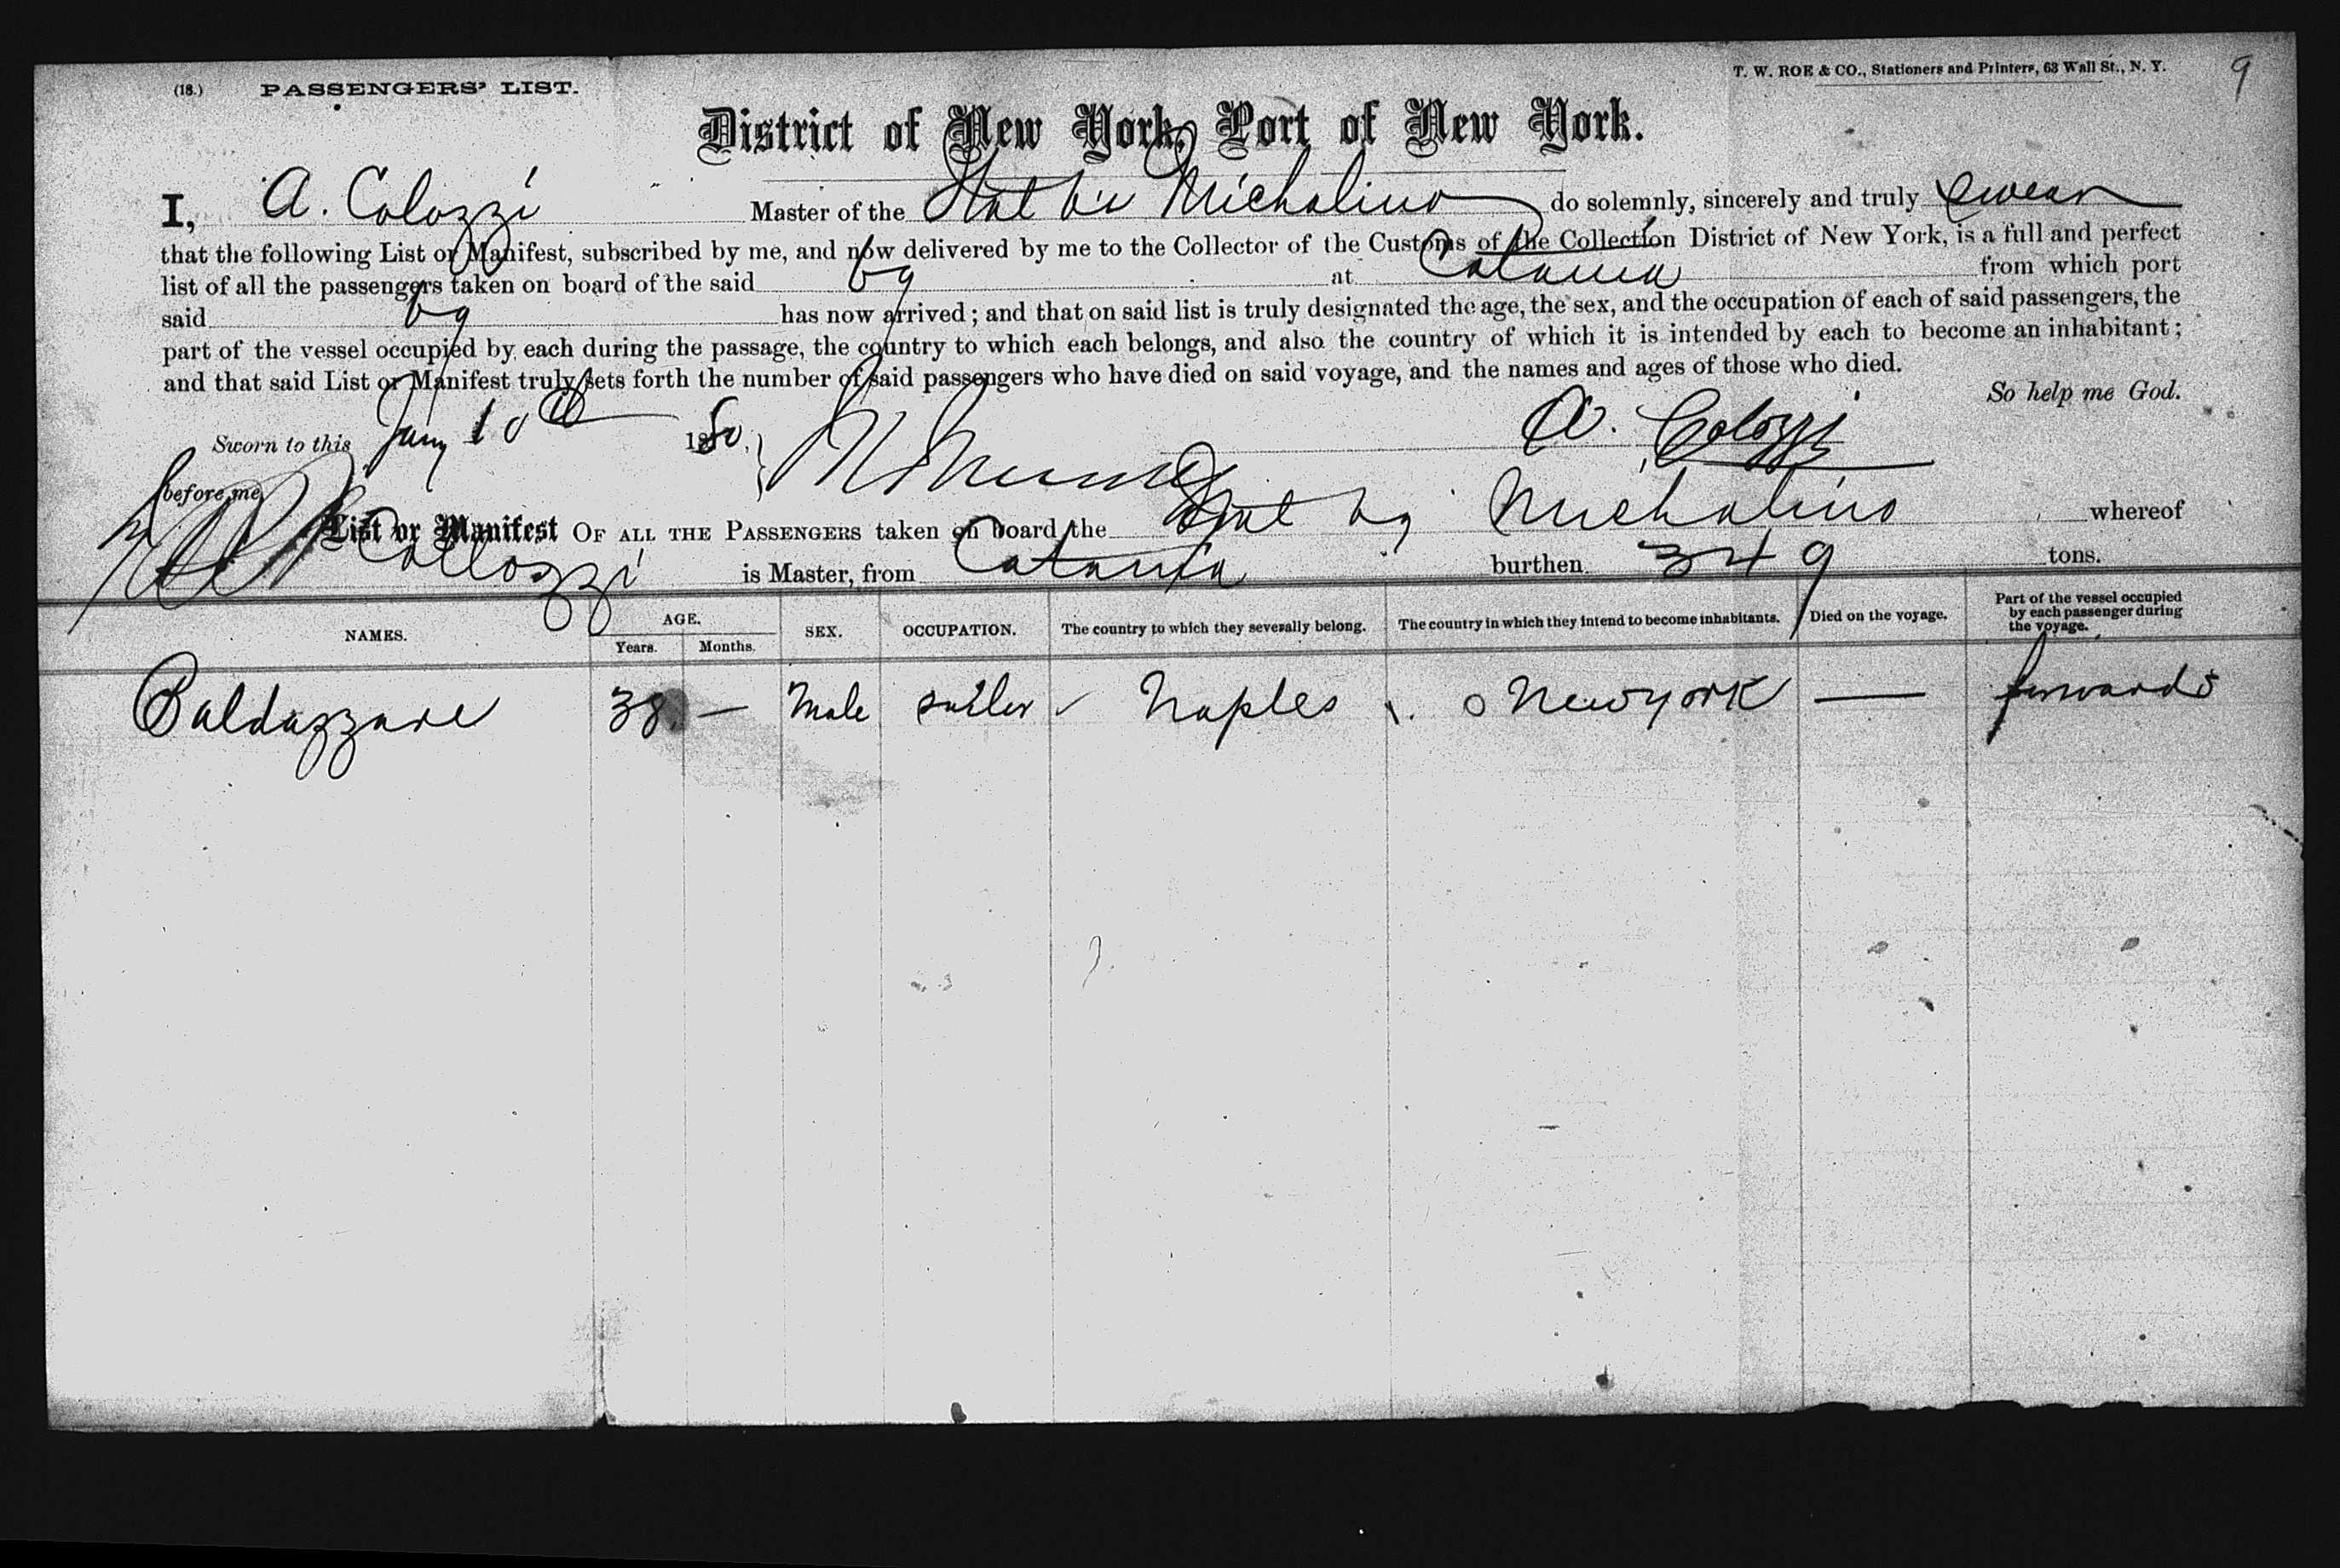 (18.) PASSENGERS' LIST.
T. W. ROE & CO., Stationers and Printers, 63 Wall St., N. Y.
9
District of New York, Port of New York.
I, A. Colozzi Master of the Ital Michalino do solemnly, sincerely and truly swear
that the following List or Manifest, subscribed by me, and now delivered by me to the Collector of the Customs of the Collection District of New York, is a full and perfect
list of all the passengers taken on board of the said bg at Catania from which port
said bg has now arrived; and that on said list is truly designated the age, the sex, and the occupation of each of said passengers, the
part of the vessel occupied by each during the passage, the country to which each belongs, and also the country of which it is intended by each to become an inhabitant;
and that said List or Manifest truly sets forth the number of said passengers who have died on said voyage, and the names and ages of those who died.
So help me God.
Sworn to this Jany 10th 1880.
A. Colozzi
before me
List or Manifest OF ALL THE PASSENGERS taken on board the Ital bg Michalino whereof
Collozzi is Master, from Catania burthen 349 tons.
NAMES. AGE. Years. Months. SEX. OCCUPATION. The country to which they severally belong. The country in which they intend to become inhabitants. Died on the voyage. Part of the vessel occupied by each passenger during the voyage.
Baldazzare 38 — Male sailer Naples New york — forwards